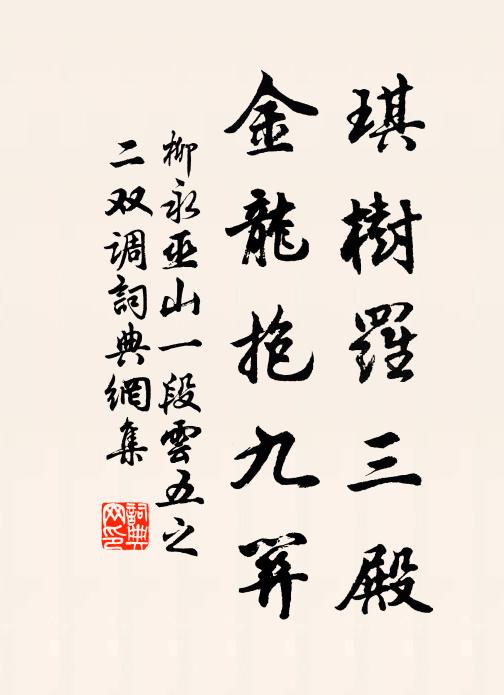 琪樹羅三殿
金龍抱九關
柳永巫山一段雲五之
二双调詞典網集
詞典
网印